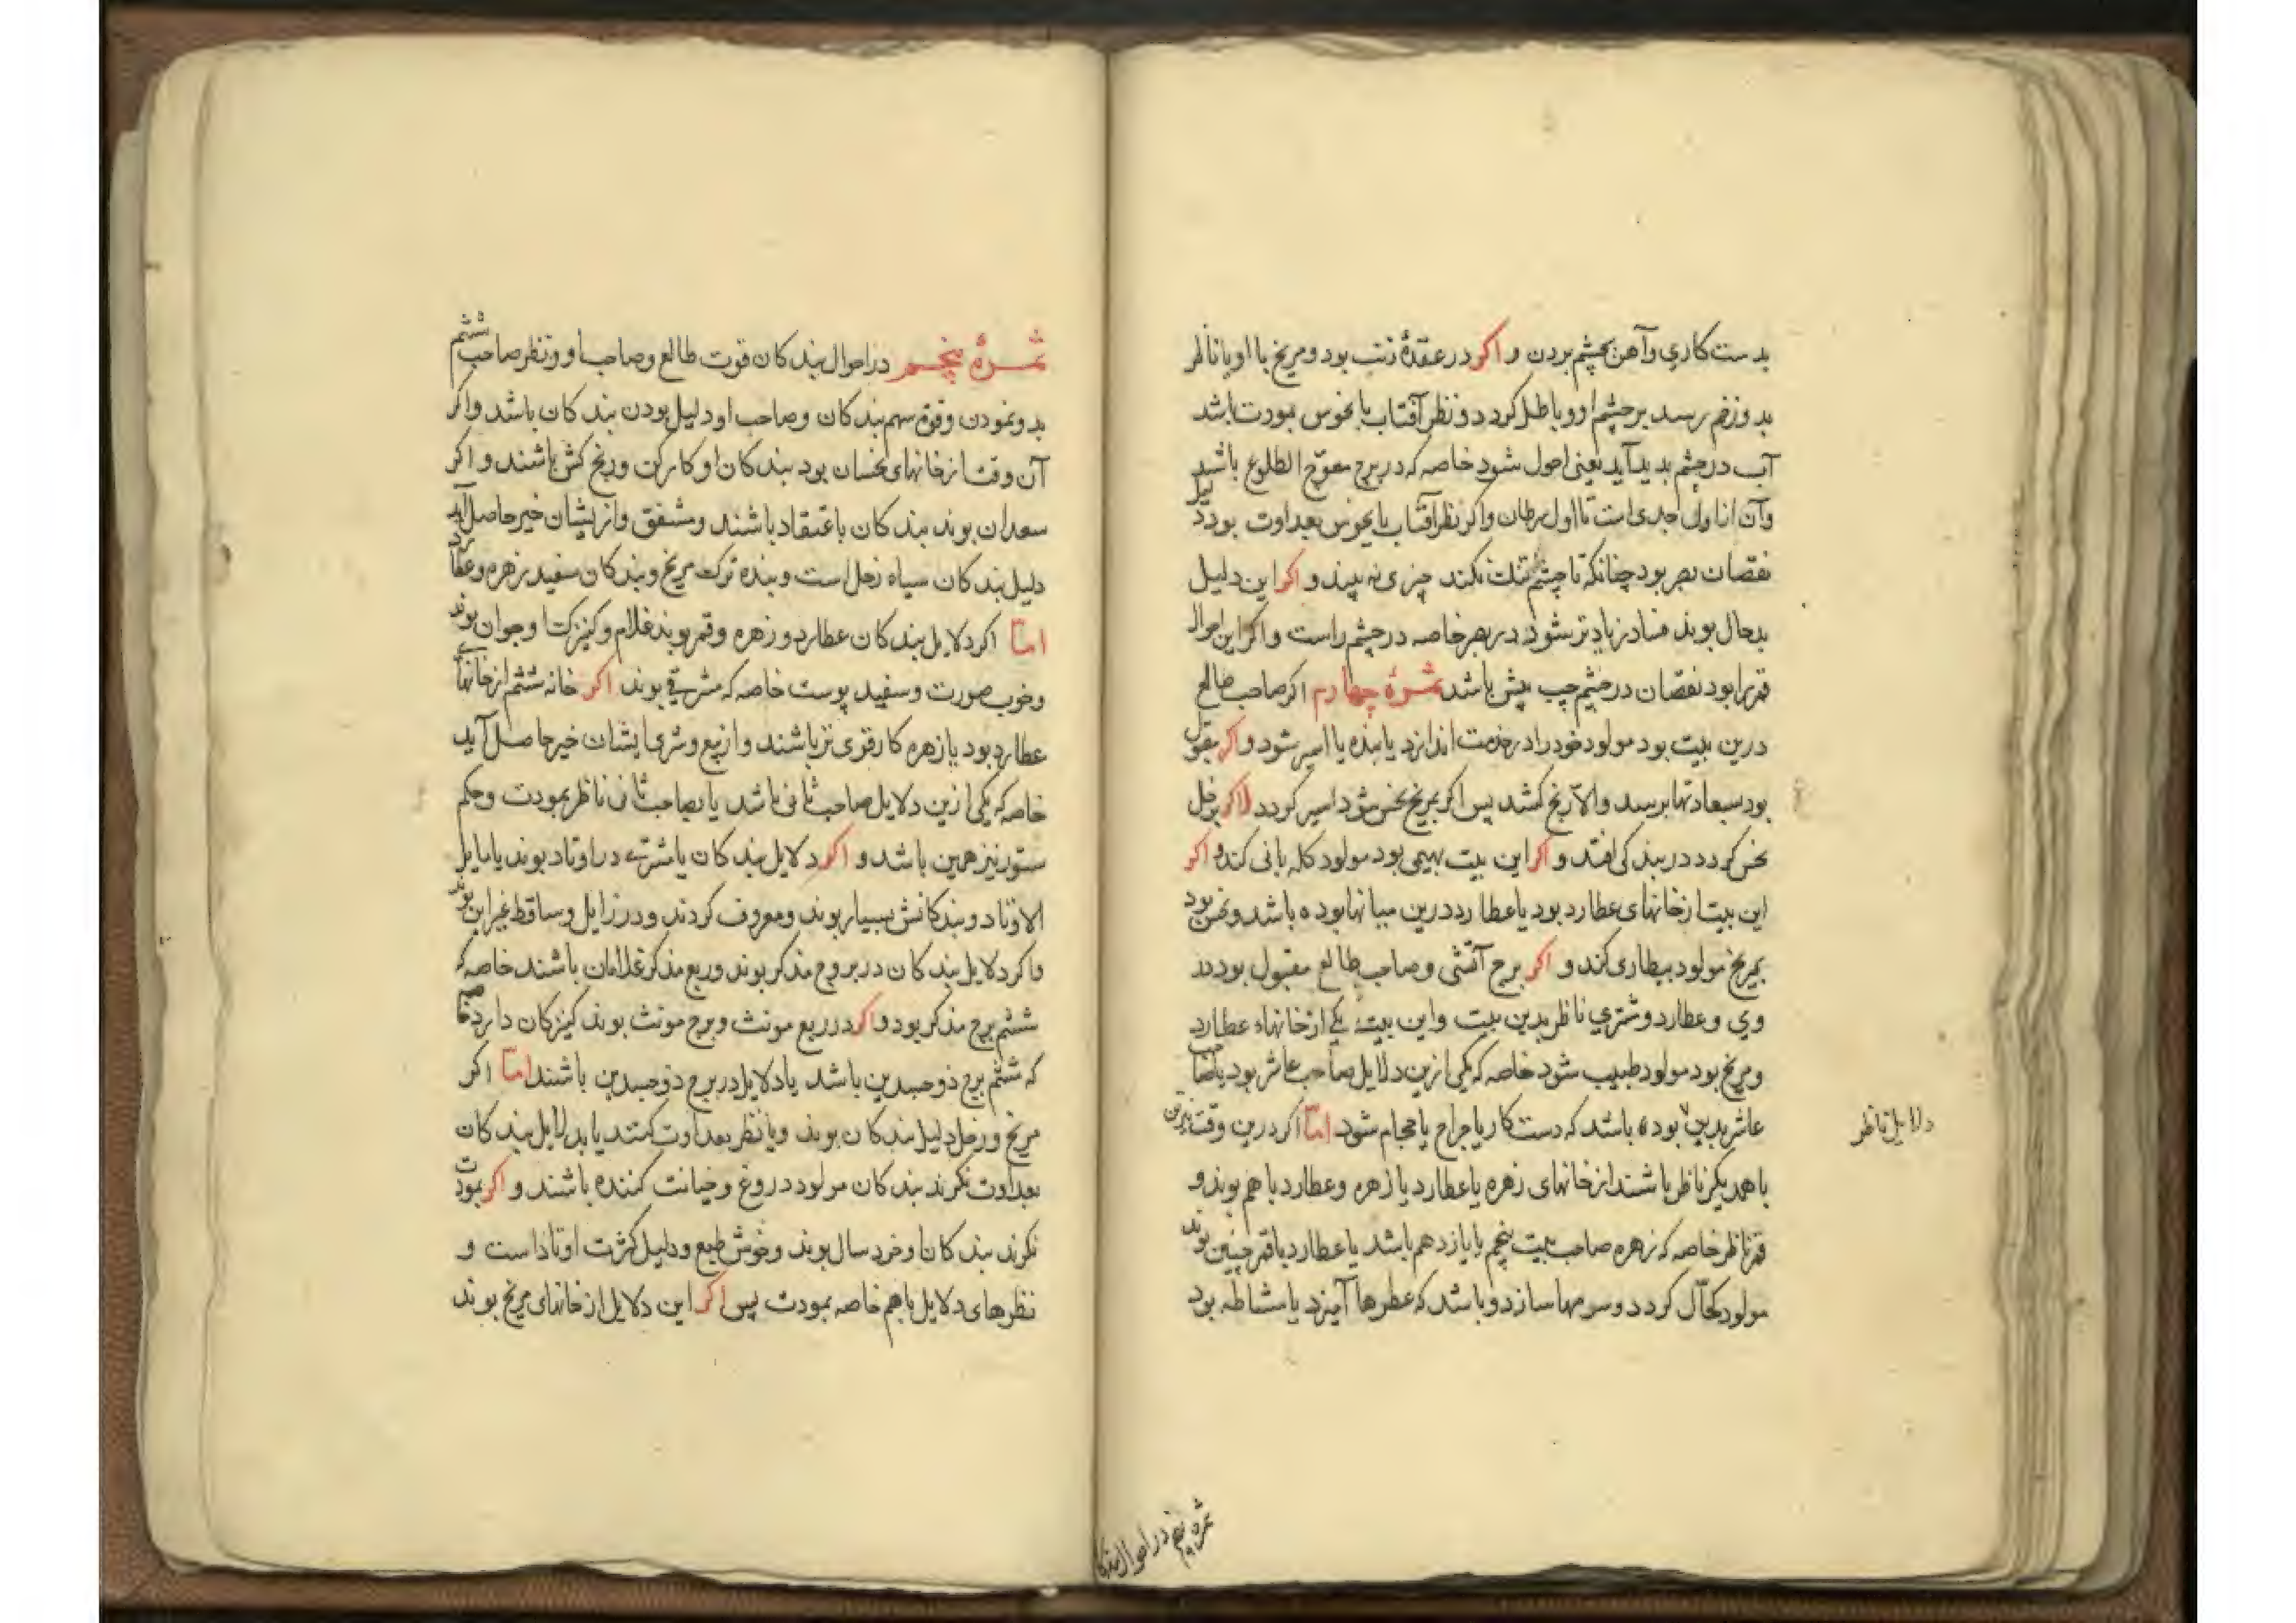 بدست کاری وآهن بچشم بردن و اکر در عقدهٔ ذنب بود ومریخ با او یا ناظر
بدو زخم رسد بر چشم او و باطل کردد و نظر آفتاب با نحوس بمودت باشد
آب در چشم بدید آید یعنی احول شود خاصه که در برج معوّج الطلوع باشد
وآن از اول جدی است تا اول سرطان واکر نظر آفتاب با نحوس بعداوت بود دلیل
نقصان بصر بود چنانکه تا چشم تنک نکند چیزی نه بیند و اکر این دلیل
بدحال بوند فساد زیادتر شود در بصر خاصه در چشم راست و اکر این احوال
قمر را بود نقصان در چشم چپ بیش باشد ثمرهٔ چهارم اکر صاحب طالع
درین بیت بود مولود خود را در خدمت اندازد یا بنده یا اسیر شود و اکر مقبول
بود سعادتها برسد والاّ رنج کشد پس اکر بمریخ نحس شود اسیر کردد و اکر بزحل
نحس کردد در بندکی افتد و اکر این بیت بهیمی بود مولود کله بانی کند و اکر
این بیت از خانهای عطارد بود یا عطارد درین میانها بوده باشد ونحس بود
بمریخ مولود بیطاری کند و اکر برج آتشی وصاحب طالع مقبول بود در
وی وعطارد ومشتری ناظر بدین بیت واین بیت یکی از خانهاء عطارد
ومریخ بود مولود طبیب شود خاصه که یکی ازین دلایل صاحب عاشر بود یا صاحب
عاشر بدین بوده باشد که دست کار یا جراح یا حجام شود امّا اکر درین وقت نیرین
با همدیکر ناظر باشند از خانهای زهره یا عطارد یا زهره وعطارد با هم بوند و
قمر ناظر خاصه که زهره صاحب بیت پنجم یا یازدهم باشد یا عطارد یا قمر چنین بوند
مولود کحّال کردد وسرمها سازد و باشد که عطرها آمیزد یا مشاطه بود
دلایل ناظر
ثمره پنجم در احوال بندکا
ثمرهٔ پنجم در احوال بندکان قوت طالع وصاحب او ونظر صاحب ششم
بدو نمودن وقوة سهم بندکان وصاحب او دلیل بودن بندکان باشد واکر
آن وقت از خانهای نحسان بود بندکان او کارکن ورنج کش باشند و اکر
سعدان بوند بندکان با عتقاد باشند ومشفق واز یشان خیر حاصل آید
دلیل بندکان سیاه زحل است وبنده ترک مریخ وبندکان سفید زهره وعطارد
امّا اکر دلایل بندکان عطارد و زهره وقمر بوند غلام وکنیزک وجوان بوند
وخوب صورت وسفید پوست خاصه که مشرقی بوند اکر خانه ششم از خانهای
عطارد بود یا زهره کارقری تر باشند و از بیع وشری ایشان خیر حاصل آید
خاصه که یکی ازین دلایل صاحب ثانی باشد یا بصاحب ثانی ناظر بمودت وحکم
ستور نیز همین باشد و اکر دلایل بندکان یا مشتری در اوتاد بوند یا مایل
الاوتاد بندکانش بسیار بوند ومعروف کردند ودر زایل وساقط غیر این بوند
واکر دلایل بندکان در بروج مذکر بوند وربع مذکر غلامان باشند خاصه که
ششم برج مذکر بود و اکر در ربع مونث وبرج مونث بوند کنیزکان دارد خاصه
که ششم برج ذو جسدین باشد یا دلایل در برج ذو جسدین باشند امّا اکر
مریخ وزحل دلیل بندکان بوند ویا نظر بعداوت کنند یا بدلایل بندکان
بعداوت نکرند بندکان مولود دروغ وخیانت کننده باشند و اکر بمودت
نکرند بندکان او خرد سال بوند وخوش طبع ودلیل کثرت اوتاد است و
نظرهای دلایل باهم خاصه بمودت پس اکر این دلایل از خانهای مریخ بوند